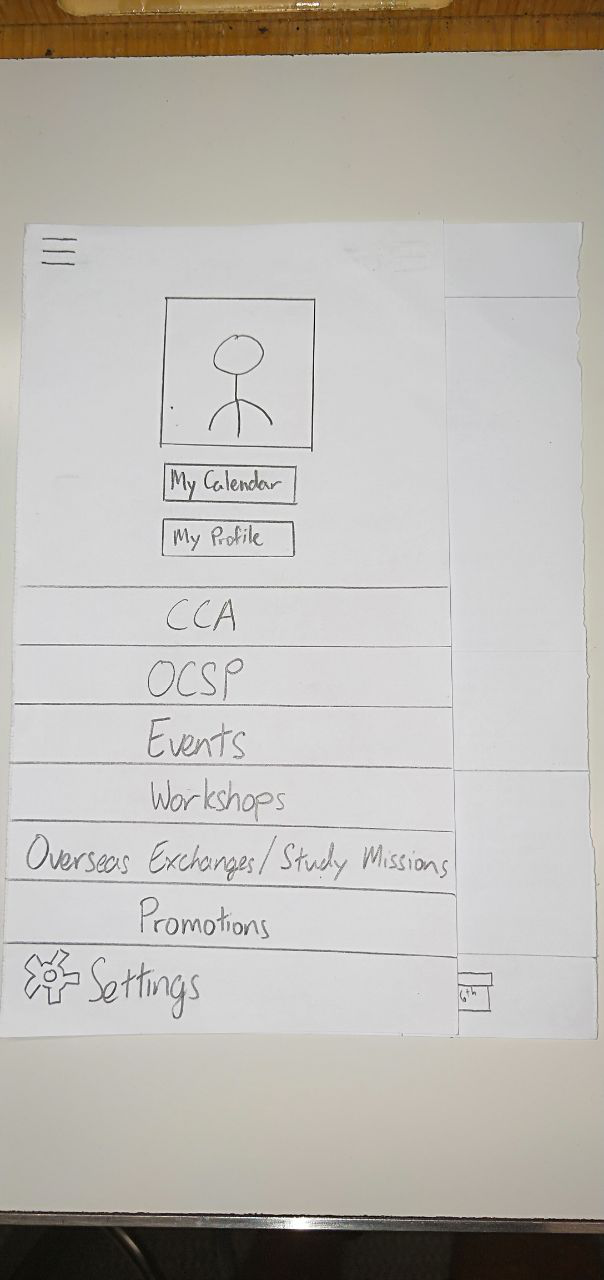 My Calendar
My Profile
CCA
OCSP
Events
Workshops
Overseas Exchanges/Study Missions
Promotions
Settings
6th